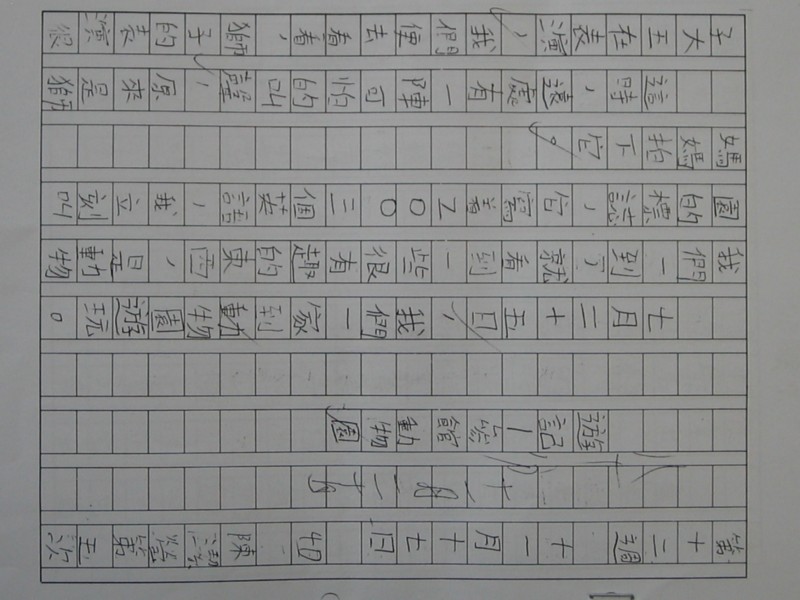 第十二週 十一月十七日 陳潔瑩 第五次
十一月二十日
遊記—參館動物園
七月二十五日，我們一家到動物園遊玩。
我們一到了就看到一些很有趣的東西，是動物
園的標誌，它寫着ZOO三個英語，我立刻叫
媽媽拍下它。
這時，遠處有一陣可怕的叫聲，原來是獅
子大王在表演，我們便去看看，獅子的表演很